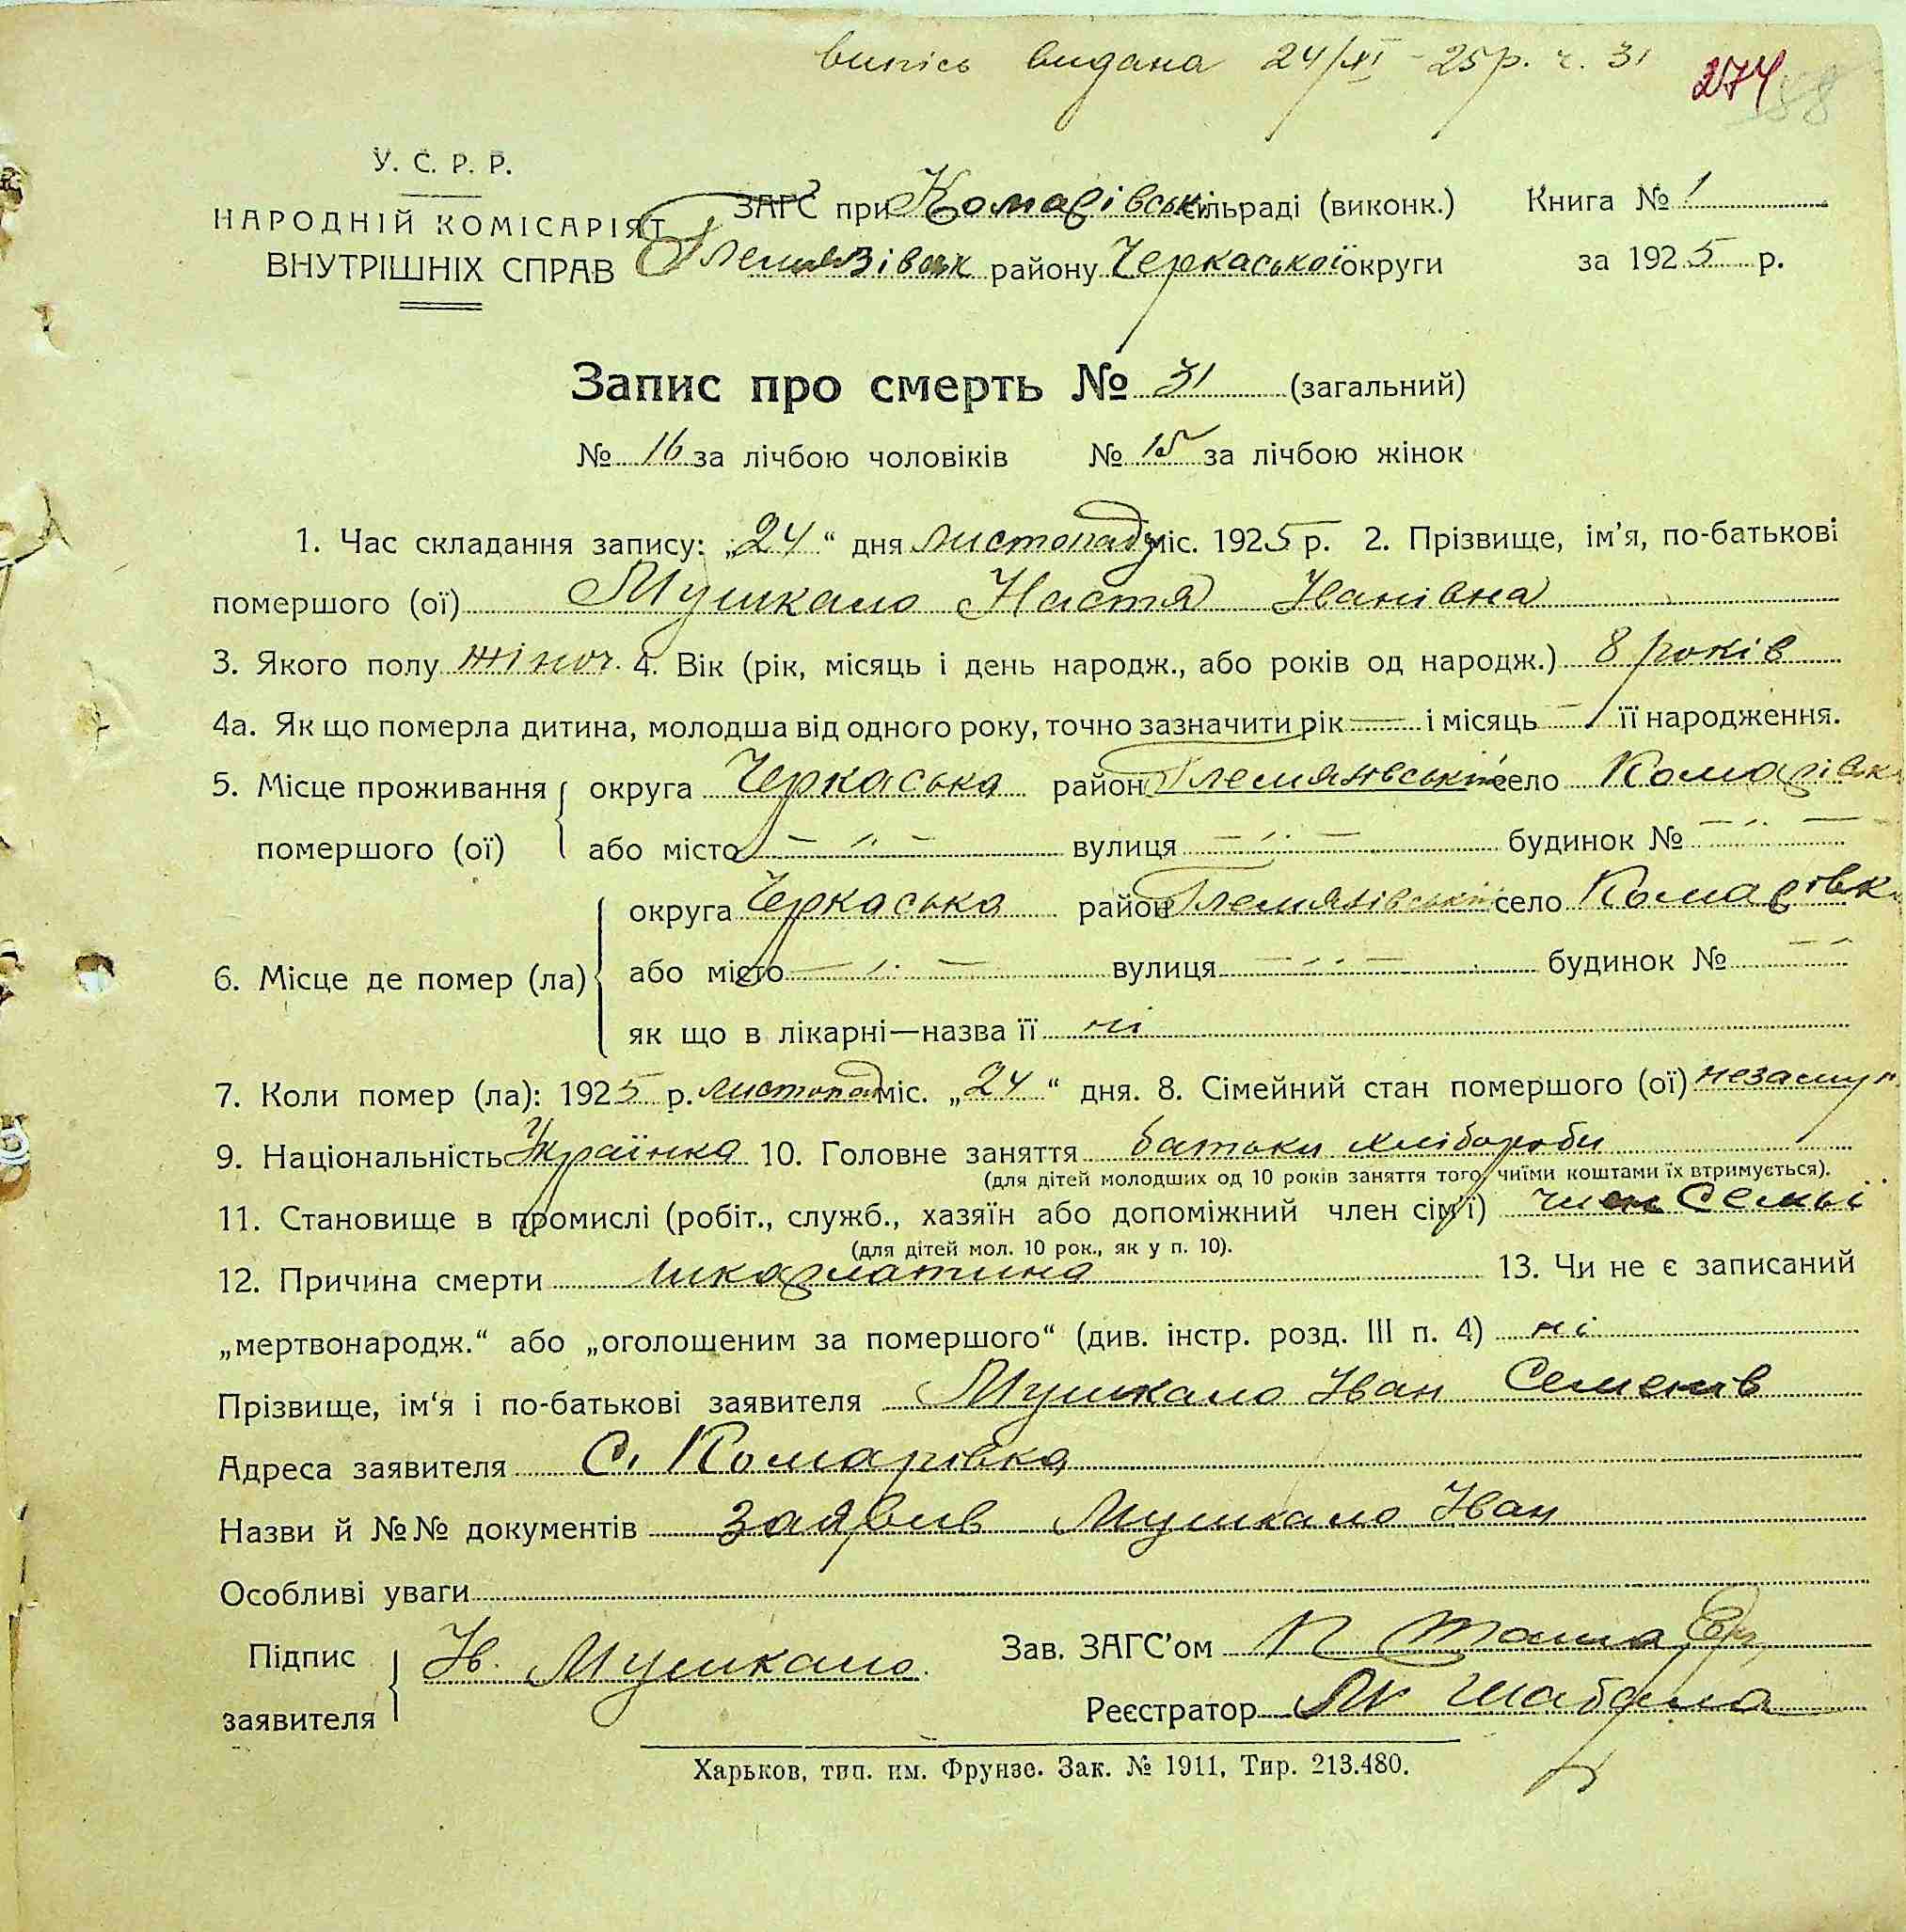 випісь видана 24/XI - 25 р. ч. 31
274 88
У. С. Р. Р.
НАРОДНІЙ КОМІСАРІЯТ
ВНУТРІШНІХ СПРАВ
ЗАГС при Комарівськ сільраді (виконк.) Книга № 1
району Черкаської округи за 1925 р.
Запис про смерть № 31 (загальний)
№ 16 за лічбою чоловіків № 15 за лічбою жінок
1. Час складання запису: „24“ дня листопаду міс. 1925 р. 2. Прізвище, ім’я, по-батькові
помершого (ої) Мушкало Настя Іванівна
3. Якого полу жіноч. 4. Вік (рік, місяць і день народж., або років од народж.) 8 років
4а. Як що померла дитина, молодша від одного року, точно зазначити рік — і місяць — її народження.
5. Місце проживання помершого (ої) округа Черкаська район Глемязівський село Комарівка
або місто — „ — вулиця — „ — будинок № — „ —
6. Місце де помер (ла) округа Черкаська район Глемязівський село Комарівка
або місто — „ — вулиця — „ — будинок № — —
як що в лікарні—назва її ні
7. Коли помер (ла): 1925 р. листопад міс. „24“ дня. 8. Сімейний стан помершого (ої) незамуж
9. Національність Українка 10. Головне заняття батьки хлібороби
(для дітей молодших од 10 років заняття того, чиїми коштами їх втримується).
11. Становище в промислі (робіт., служб., хазяїн або допоміжний член сім’ї) член Семьї
(для дітей мол. 10 рок., як у п. 10).
12. Причина смерти шкарлатина 13. Чи не є записаний
„мертвонародж.“ або „оголошеним за помершого“ (див. інстр. розд. III п. 4) ні
Прізвище, ім‘я і по-батькові заявителя Мушкало Іван Семенів
Адреса заявителя С. Комарівка
Назви й №№ документів заявив Мушкало Іван
Особливі уваги
Підпис заявителя Ів. Мушкало. Зав. ЗАГС’ом
Реєстратор Як Шабала
Харьков, тип. им. Фрунзе. Зак. № 1911, Тир. 213.480.